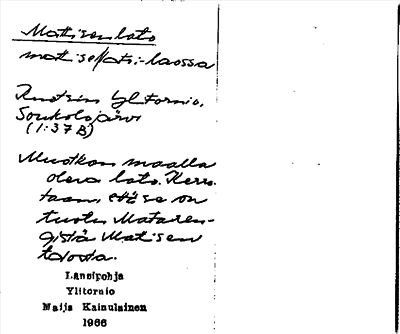 Matisenlato
matisellatɔ:-laossa
Ruotsin Ylitornio,
Soukolojärvi
(1:37B)
Muotkan maalla
oleva lato. Kerro-
taan, että se on
tuotu Mataren-
gistä Matisen
talosta.
Länsipohja
Ylitornio
Maija Kainulainen
1966